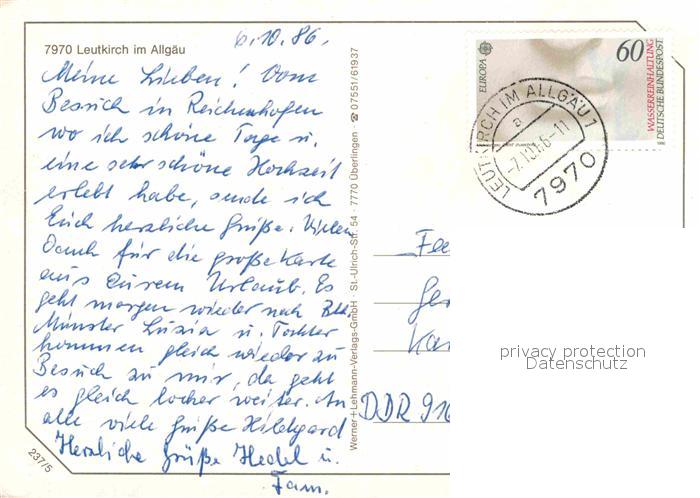 7970 Leutkirch im Allgäu
6.10.86.
Meine Lieben! Vom
Besuch in Reichenhofen
wo ich schöne Tage u.
eine sehr schöne Hochzeit
erlebt habe, sende ich
Euch herzliche Grüße. Vielen
Dank für die große Karte
aus Eurem Urlaub. Es
geht morgen wieder nach
Münster Luzia u. Tochter
kommen gleich wieder zu
Besuch zu mir, da geht
es gleich locker weiter. An
alle viele Grüße Hildegard
Herzliche Grüße Hedel u.
Fam.
237/5
Werner+Lehmann-Verlags-GmbH · St.-Ulrich-Str. 54 · 7770 Überlingen ☎ 07551/61937
EUROPA
60
WASSERREINHALTUNG
DEUTSCHE BUNDESPOST
LEUTKIRCH IM ALLGÄU 1
a
-7.10.86-11
7970
DDR 916
privacy protection
Datenschutz